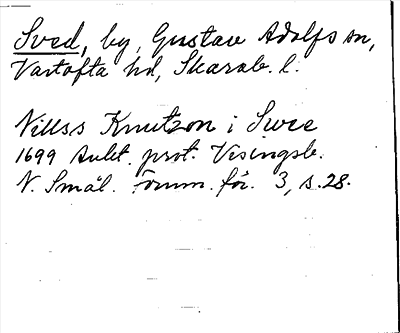 Sved, by, Gustav Adolfs sn,
Vartofta hd, Skarab. l.
Nillss Knutzon i Swee
1699 Antet. prot. Visingsb.
N. Smål. Fornm. för. 3, s. 28.